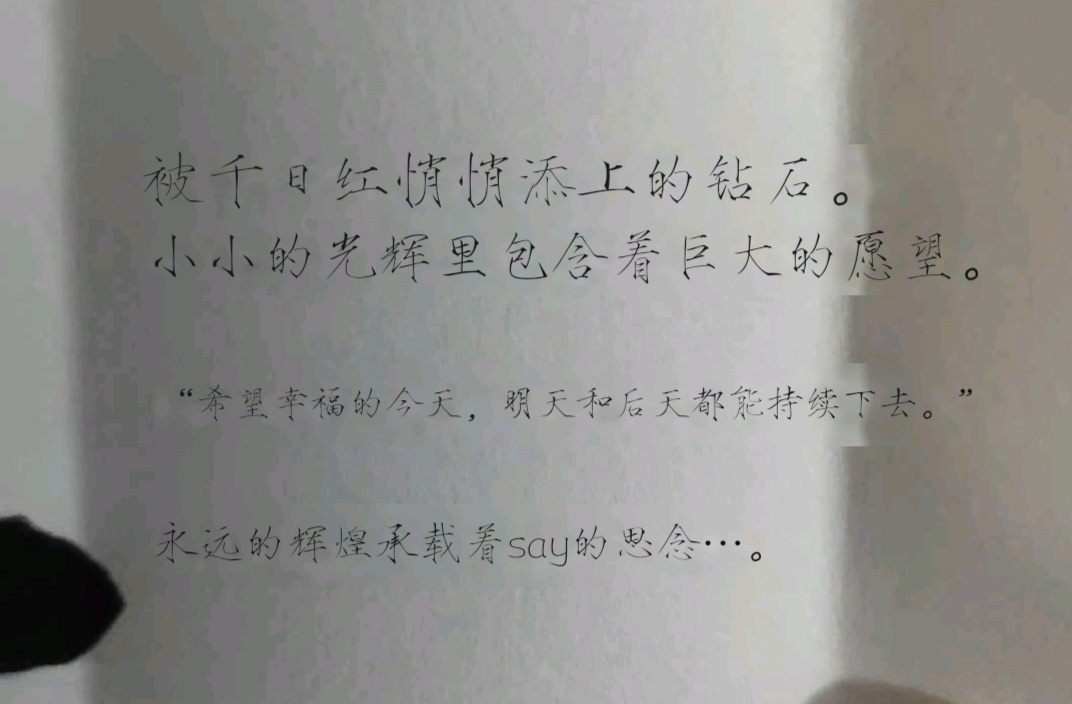 被千日红悄悄添上的钻石。
小小的光辉里包含着巨大的愿望。
“希望幸福的今天，明天和后天都能持续下去。”
永远的辉煌承载着say的思念…。